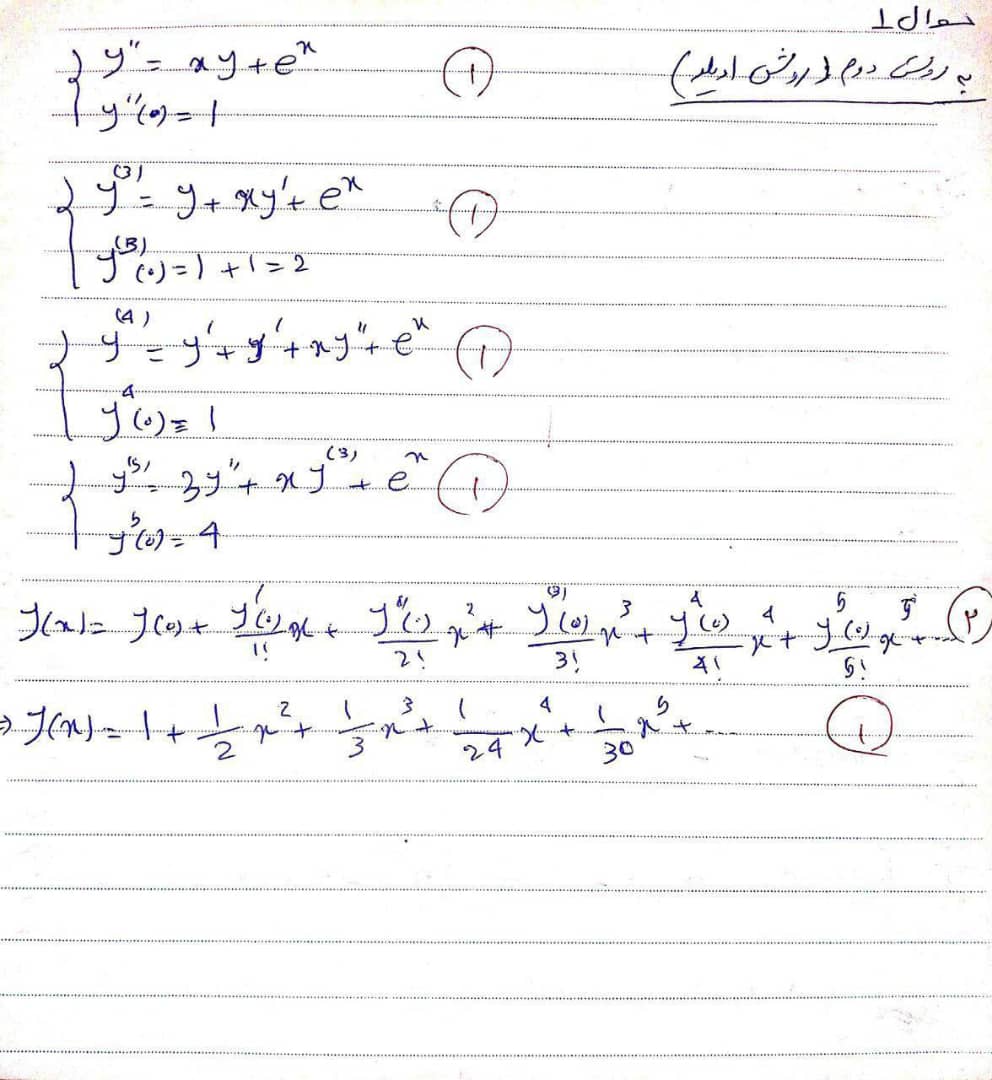 سوال 1
به روش دوم (روش اویلر)
y'' = xy + e^x ①
y''(0) = 1
y^(3) = y + xy' + e^x ①
y^(3)(0) = 1 + 1 = 2
y^(4) = y' + y' + xy'' + e^x ①
y^4(0) = 1
y^(5) = 3y'' + xy^(3) + e^x ①
y^5(0) = 4
y(x) = y(0) + y'(0)/1! x + y''(0)/2! x^2 + y^(3)(0)/3! x^3 + y^4(0)/4! x^4 + y^5(0)/5! x^5 + ... (۲)
⇒ y(x) = 1 + 1/2 x^2 + 1/3 x^3 + 1/24 x^4 + 1/30 x^5 + ... ①